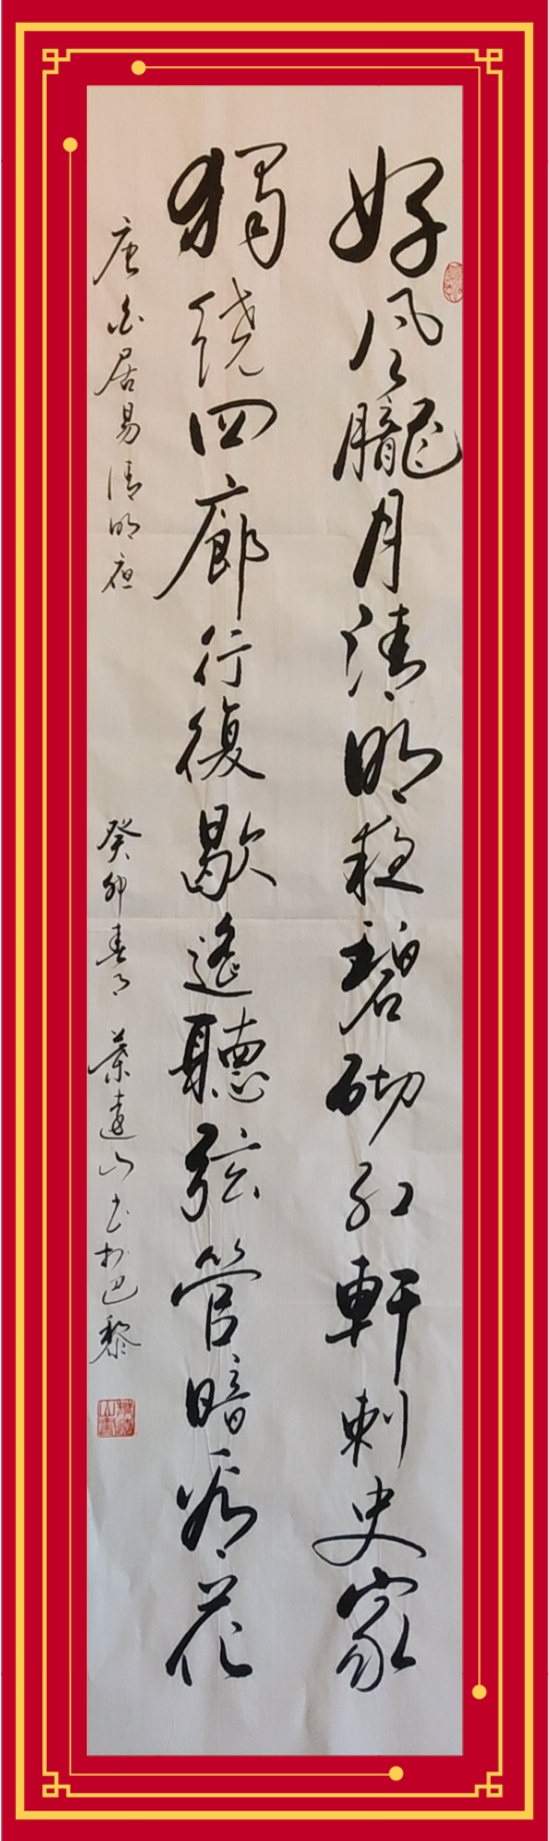 好风朧月清明夜碧砌红軒刺史家
獨绕四廊行復歇遙聽弦管暗看花
唐白居易清明夜
癸卯春月 葉達山书於巴黎